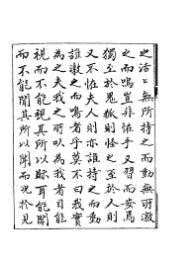 之活〻無所持之而動無所激
之而鳴豈非怪乎又習而安焉
獨至於鬼則怪之至於人則
又不怪夫人則亦誰持之而動
誰激之而鳴者乎莫不曰我實
為之夫我之所以為我者目能
視而不能視其所以視耳能聞
而不能聞其所以聞而況於見